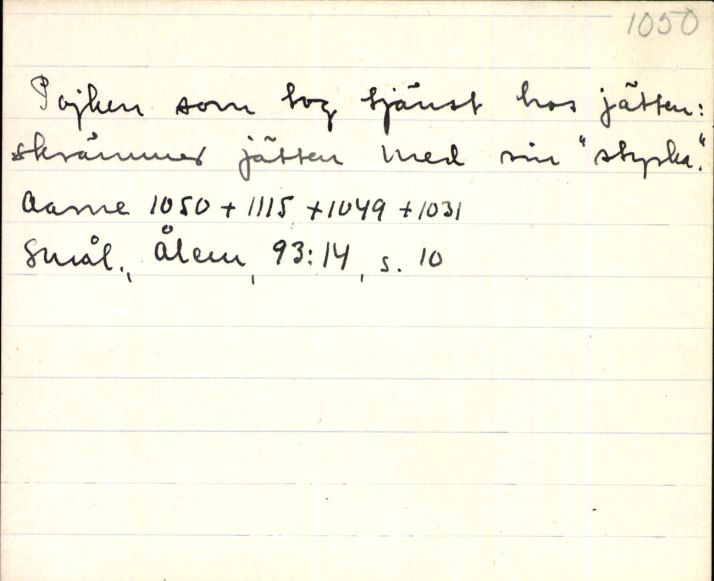 1050
Pojken som tog tjänst hos jätten:
skrämmer jätten med sin "styrka".
Aarne 1050 + 1115 + 1049 + 1031
Smål., Ålem, 93:14, s. 10